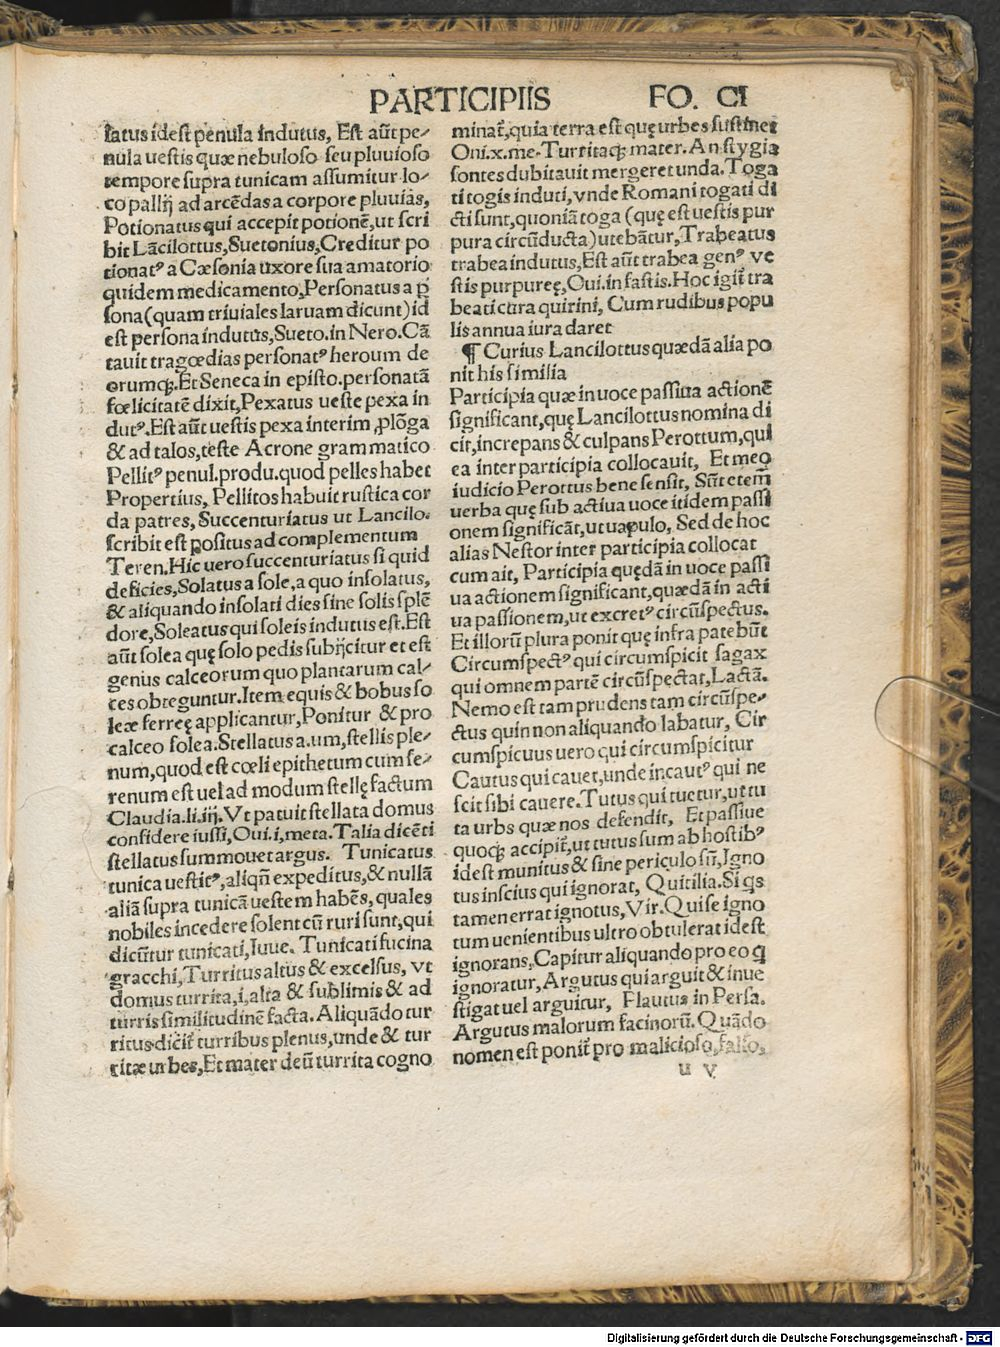 PARTICIPIIS FO. CI
latus idest penula indutus, Est aūt pe-
nula uestis quæ nebuloso seu pluuioso
tempore supra tunicam assumitur lo-
co pallij ad arcēdas a corpore pluuias,
Potionatus qui accepit potionē, ut scri
bit Lācilottus, Suetonius, Creditur po
tionatꝰ a Cæsonia uxore sua amatorio
quidem medicamento, Personatus a ꝑ
sona (quam triuiales laruam dicunt) id
est persona indutus, Sueto. in Nero. Cā
tauit tragœdias personatꝰ heroum de
orumqꝫ. Et Seneca in episto. personatā
fœlicitatē dixit, Pexatus ueste pexa in
dutꝰ. Est aūt uestis pexa interim ꝓlōga
& ad talos, teste Acrone grammatico
Pellitꝰ penul. produ. quod pelles habet
Propertius, Pellitos habuit rustica cor
da patres, Succenturiatus ut Lancilo.
scribit est positus ad complementum
Teren. Hic uero succenturiatus si quid
deficies, Solatus a sole, a quo insolatus,
& aliquando insolati dies sine solis splē
dore, Soleatus qui soleis indutus est. Est
aūt solea quę solo pedis subijcitur et est
genus calceorum quo plantarum cal-
ces obteguntur. Item equis & bobus so
leæ ferreę applicantur, Ponitur & pro
calceo solea. Stellatus a. um, stellis ple-
num, quod est cœli epithetum cum se-
renum est uel ad modum stellę factum
Claudia. li. iij. Vt patuit stellata domus
confidere iussi, Oui. i, meta. Talia dicēti
stellatus summouet argus. Tunicatus
tunica uestitꝰ, aliqñ expeditus, & nullā
aliā supra tunicā uestem habēs, quales
nobiles incedere solent cū ruri sunt, qui
dicūtur tunicati, Iuue. Tunicati fucina
gracchi, Turritus altus & excelsus, vt
domus turrita, i, alta & sublimis & ad
turris similitudinē facta. Aliquādo tur
ritus dicit̄ turribus plenus, unde & tur
ritæ urbes, Et mater deū turrita cogno
minat̄, quia terra est quę urbes sustinet
Oui. x. me. Turritaqꝫ mater. An stygia
fontes dubitauit mergeret unda. Toga
ti togis induti, vnde Romani togati di
cti sunt, quoniā toga (quę est uestis pur
pura circūducta) utebātur, Trabeatus
trabea indutus, Est aūt trabea genꝰ ve
stis purpureę, Oui. in fastis. Hoc igit̄ tra
beati cura quirini, Cum rudibus popu
lis annua iura daret
¶ Curius Lancilottus quædā alia po
nit his similia
Participia quæ in uoce passiua actionē
significant, quę Lancilottus nomina di
cit, increpans & culpans Perottum, qui
ea inter participia collocauit, Et meo
iudicio Perottus bene sensit, Sūt etem̄
uerba quę sub actiua uoce itidem passi
onem significāt, ut uapulo, Sed de hoc
alias Nestor inter participia collocat
cum ait, Participia quędā in uoce passi
ua actionem significant, quædā in acti
ua passionem, ut excretꝰ circūspectus.
Et illorū plura ponit quę infra patebūt
Circumspectꝰ qui circumspicit sagax
qui omnem partē circūspectat, Lactā.
Nemo est tam prudens tam circūspe-
ctus quin non aliquando labatur, Cir
cumspicuus uero qui circumspicitur
Cautus qui cauet, unde incautꝰ qui ne
scit sibi cauere. Tutus qui tuetur, ut tu
ta urbs quæ nos defendit, Et passiue
quoqꝫ accipit̄, ut tutus sum ab hostibꝰ
idest munitus & sine periculo sū, Igno
tus inscius qui ignorat, Quitilia. Si qs
tamen errat ignotus, Vir. Qui se igno
tum uenientibus ultro obtulerat idest
ignorans, Capitur aliquando pro eo q̄
ignoratur, Argutus qui arguit & inue
stigat uel arguitur, Flautus in Persa.
Argutus malorum facinorū. Quādo
nomen est ponit̄ pro malicioso, falso,
u v
Digitalisierung gefördert durch die Deutsche Forschungsgemeinschaft - DFG